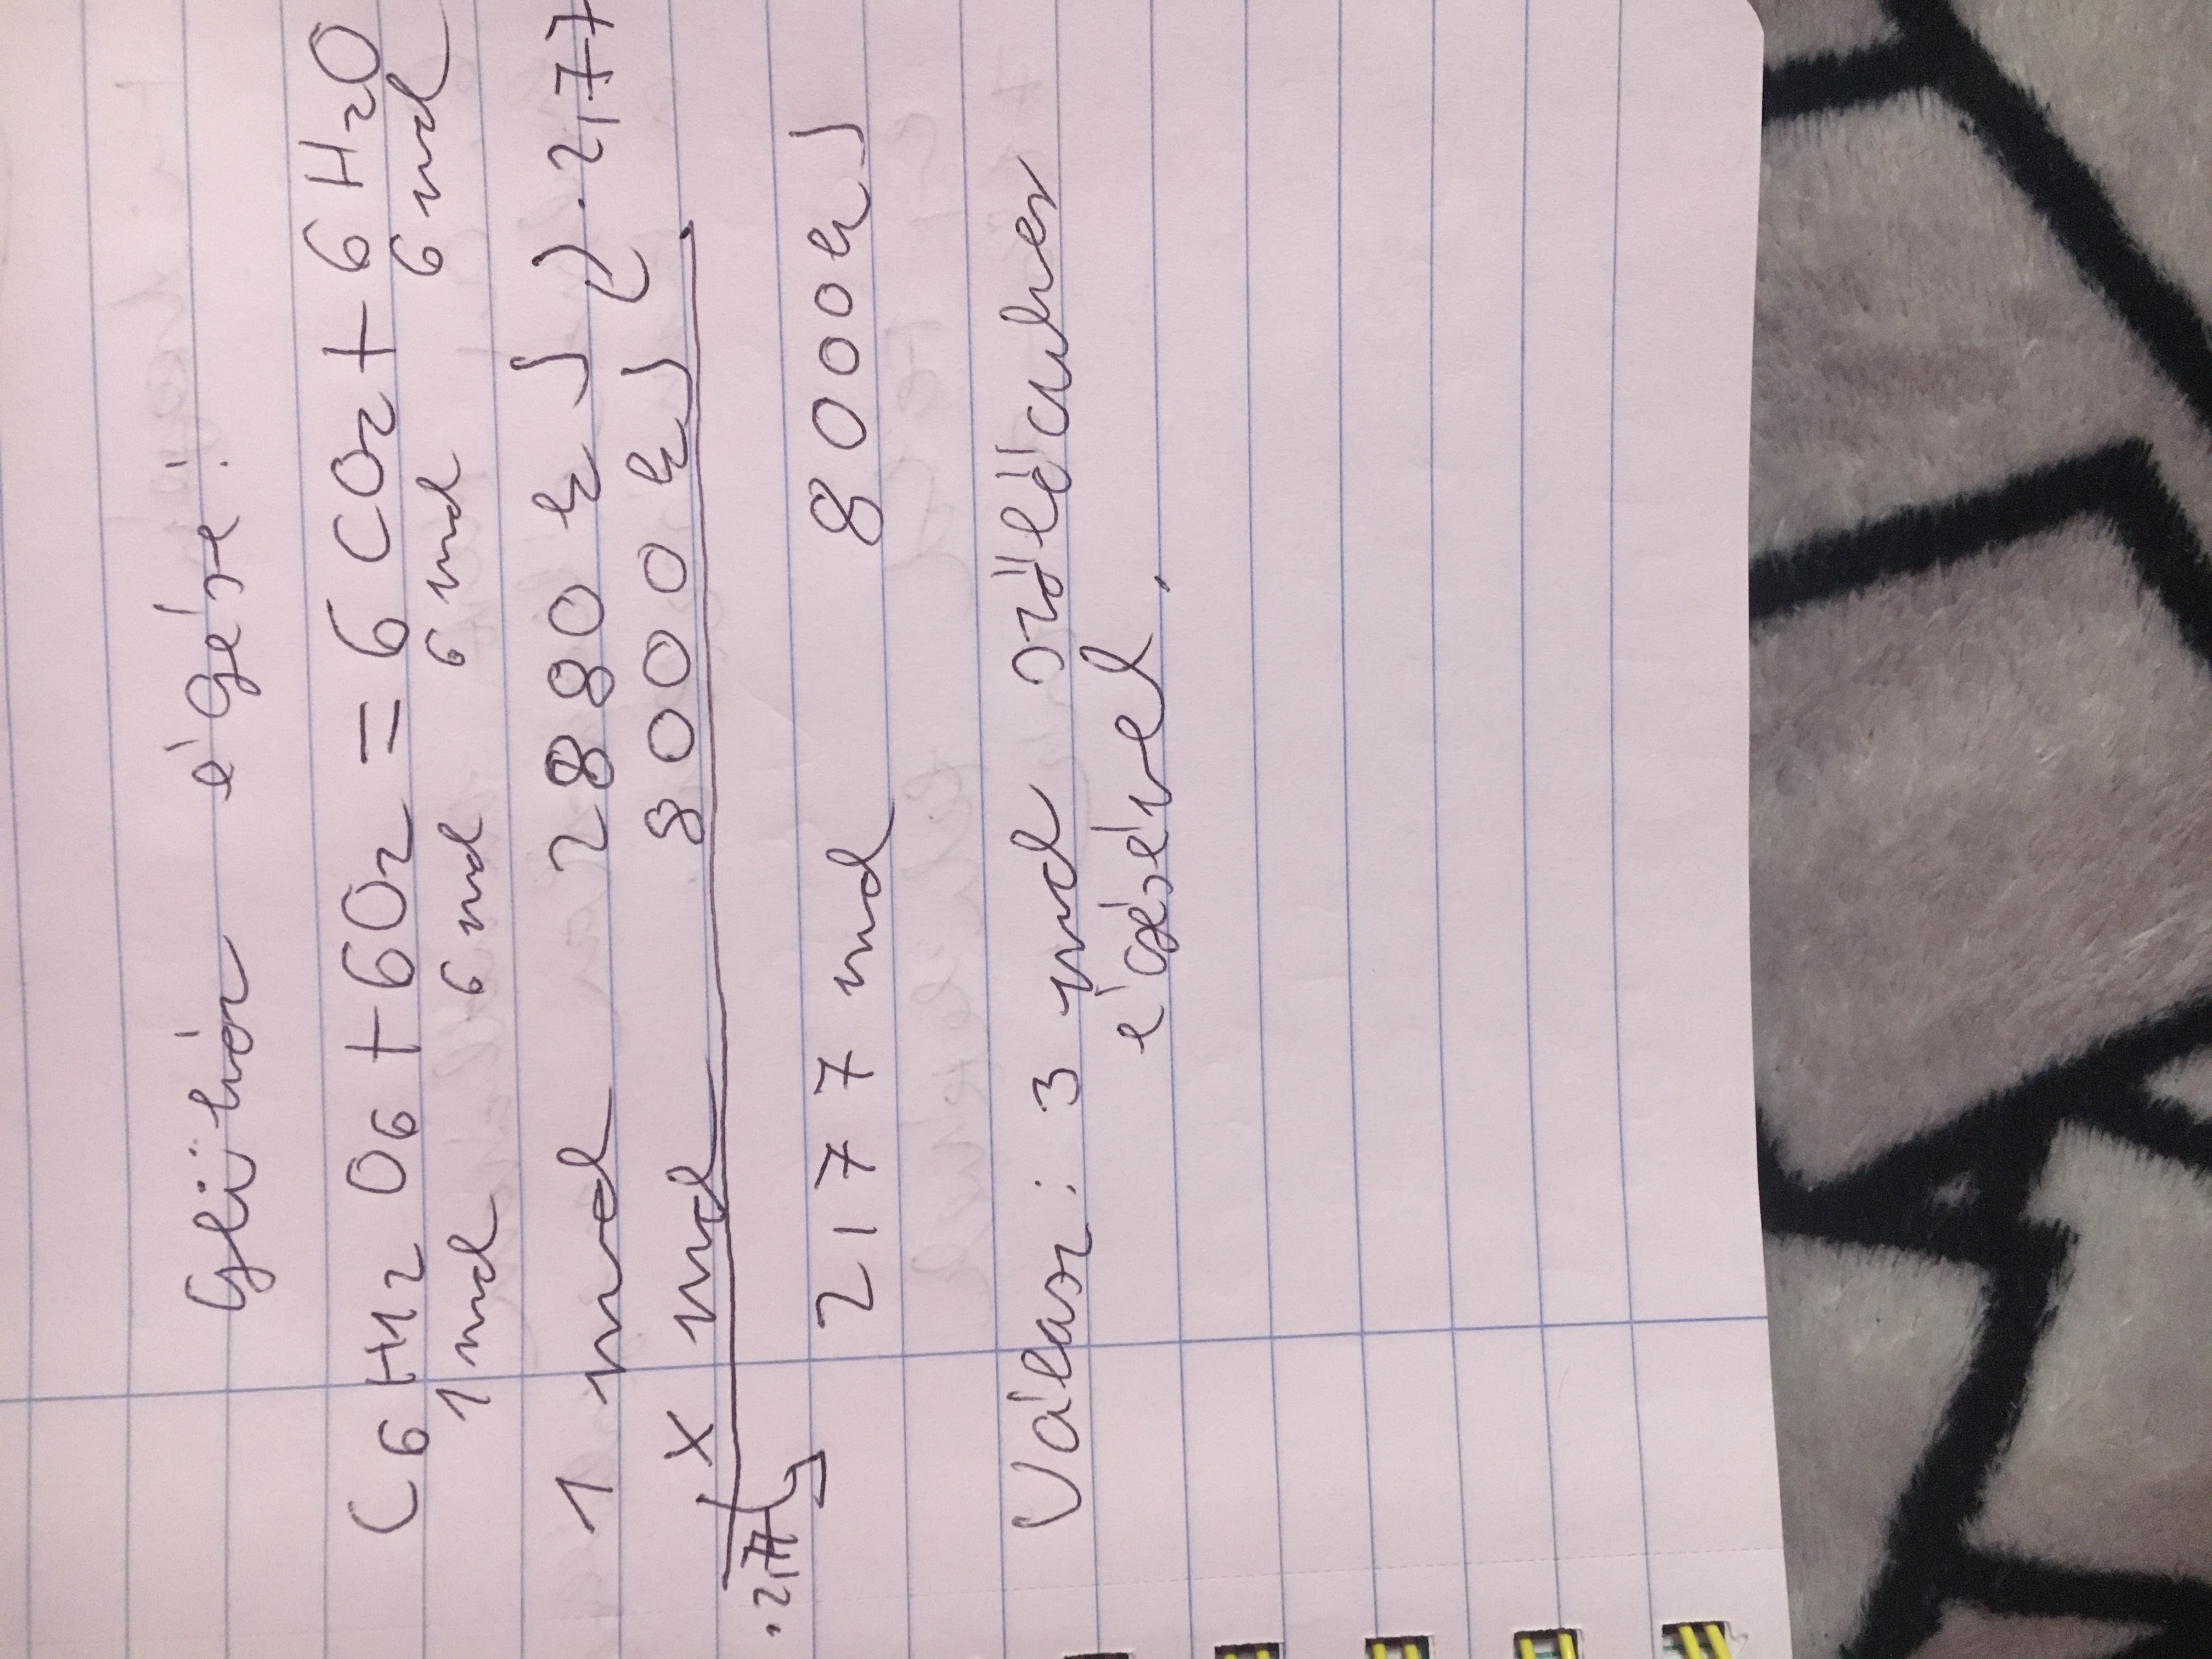 Glükóz égése:
C6 H12 O6 + 6O2 = 6 CO2 + 6 H2O
1 mol 6 mol 6 mol 6 mol
1 mol 2880 kJ ) · 2,77
x mol 8000 kJ
· 2,77
2,77 mol 8000 kJ
Válasz: 3 mol szőlőcukor
égésével.